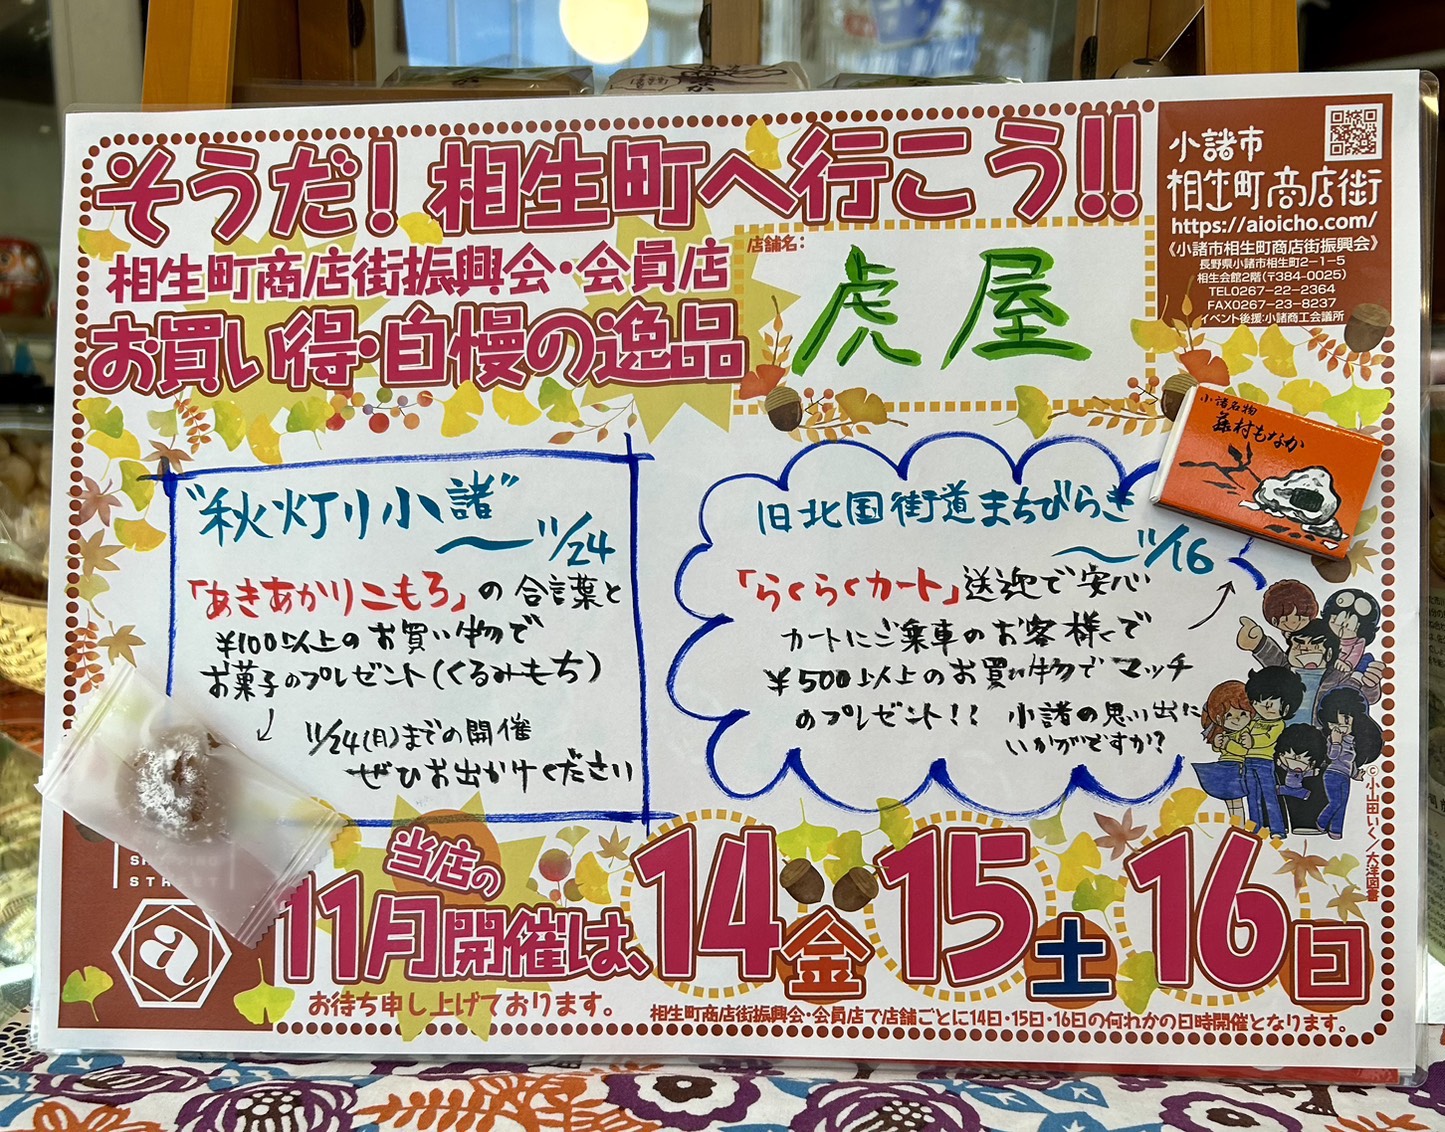 そうだ！相生町へ行こう!!
相生町商店街振興会・会員店
お買い得・自慢の逸品
店舗名：
虎屋
小諸市
相生町商店街
https://aioicho.com/
《小諸市相生町商店街振興会》
長野県小諸市相生町2-1-5
相生会館2階(〒384-0025)
TEL0267-22-2364
FAX0267-23-8237
イベント後援:小諸商工会議所
小諸名物
藤村もなか
"秋灯り小諸"
〜11/24
「あきあかりこもろ」の合言葉と
¥100以上のお買い物で
お菓子のプレゼント(くるみもち)
↓
11/24(月)までの開催
ぜひお出かけください
旧北国街道まちびらき
〜11/16
「らくらくカート」送迎で安心
カートにご乗車のお客様で
¥500以上のお買い物でマッチ
のプレゼント!! 小諸の思い出に
いかがですか?
©小山田いく／大洋図書
SHOPPING
STREET
a
当店の
11月開催は、14金 15土 16日
お待ち申し上げております。
相生町商店街振興会・会員店で店舗ごとに14日・15日・16日の何れかの日時開催となります。